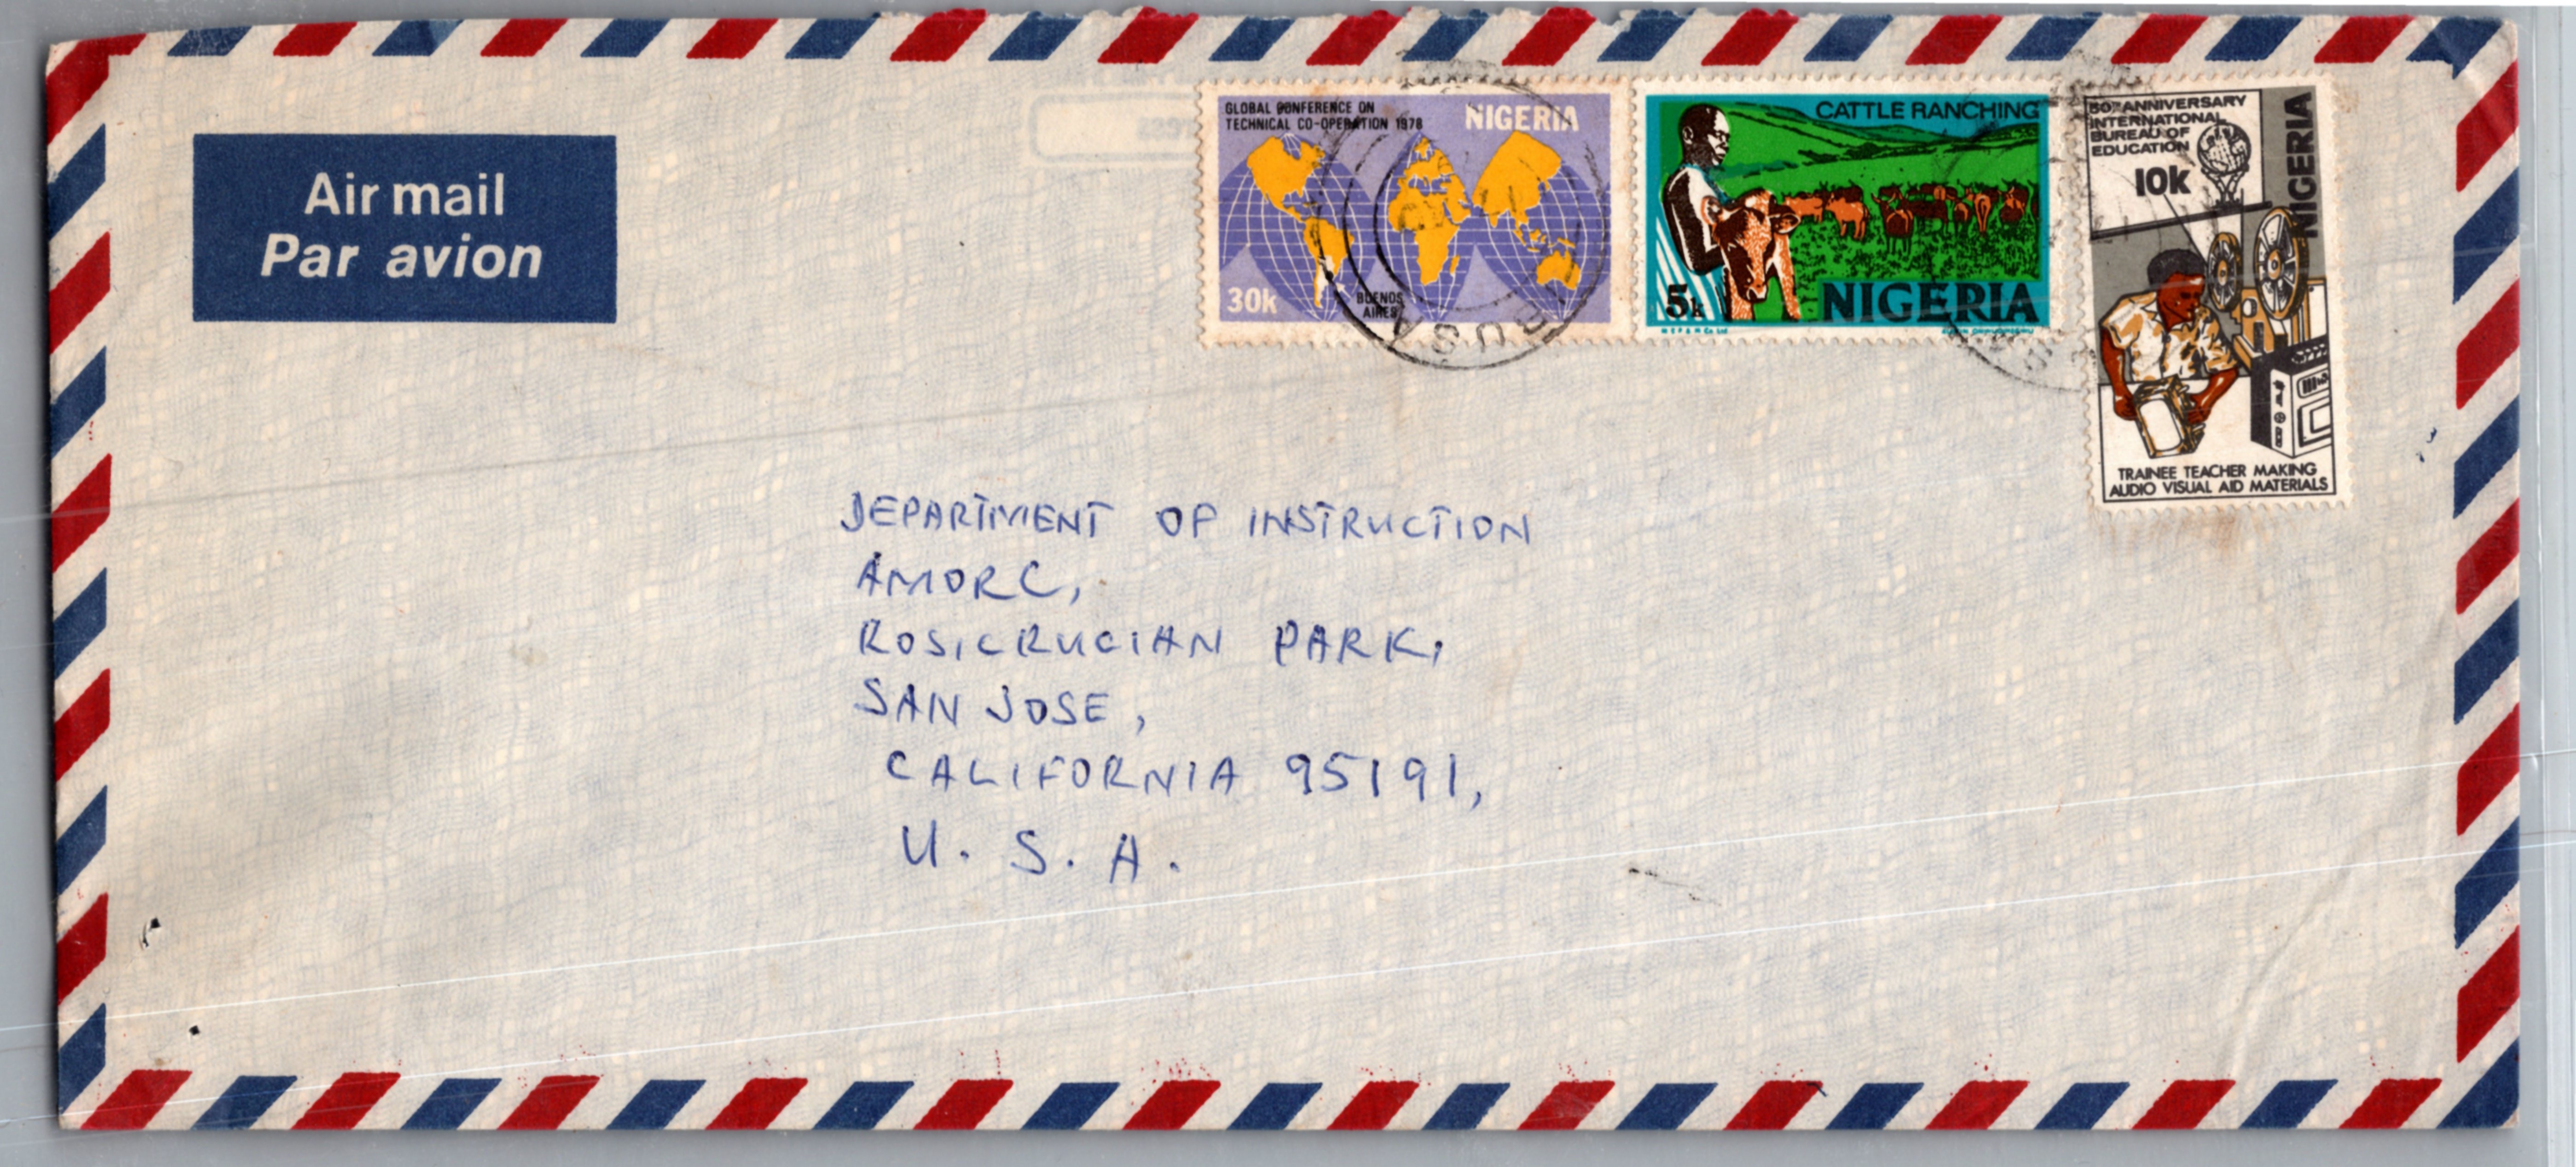 Air mail
Par avion
GLOBAL CONFERENCE ON
TECHNICAL CO-OPERATION 1978
NIGERIA
30k
BUENOS
AIRES
CATTLE RANCHING
5k
NIGERIA
50TH ANNIVERSARY
INTERNATIONAL
BUREAU OF
EDUCATION
10k
NIGERIA
TRAINEE TEACHER MAKING
AUDIO VISUAL AID MATERIALS
DEPARTMENT OF INSTRUCTION
AMORC,
ROSICRUCIAN PARK,
SAN JOSE,
CALIFORNIA 95191,
U. S. A.